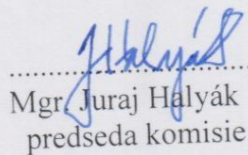 JHalyák
................................
Mgr. Juraj Halyák
predseda komisie